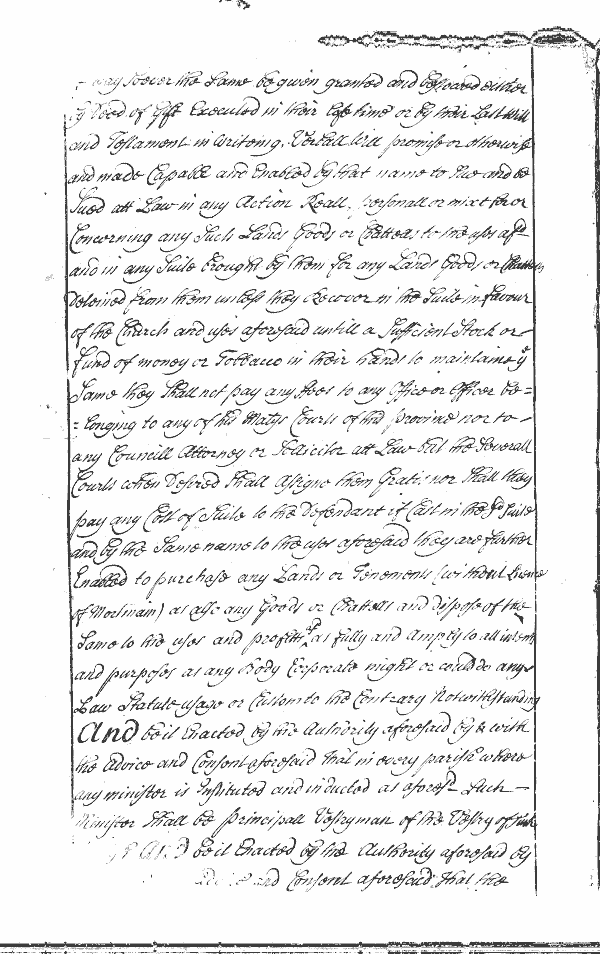 way soever the Same be given granted and bestowed either
by Deed of Gift Executed in their Life time or by their Last Will
and Testament in writeing, Verball Will promise or otherwise
and made Capable and Enabled by that name to Sue and be
Sued att Law in any Action Reall, personall or mixt for or
Concerning any Such Lands Goods or Chattells to the uses afsd
and in any Suite brought by them for any Lands Goods or Chattells
Deteined from them unless they Recover in the Suite in favour
of the Church and uses aforesaid untill a Sufficient Stock or
fund of money or Tobbacco in their hands to maintaine ye
Same they Shall not pay any ffees to any Office or Officer be=
=longing to any of his Matys Courts of this province nor to
any Councill Attorney or Sollicitor att Law but the Severall
Courts when Desired Shall assigne them Gratis nor Shall they
pay any Cost of Suite to the Defendant if Cast in the sd Suite
and by the Same name to the uses aforesaid they are further
Enabled to purchase any Lands or Tenements (without Lisence
of Mortmain) as also any Goods or Chattells and dispose of the
Same to the uses and profitts as fully and amply to all intents
and purposes as any Body Corporate might or could do any
Law Statute usage or Custom to the Contrary Notwithstanding
And be it Enacted by the Authority aforesaid by & with
the Advice and Consent aforesaid That in every parish where
any minister is Instituted and inducted as aforesd Such
Minister Shall be principall Vestryman of the Vestry of Such
And be it Enacted by the Authority aforesaid by
and Consent aforesaid That the